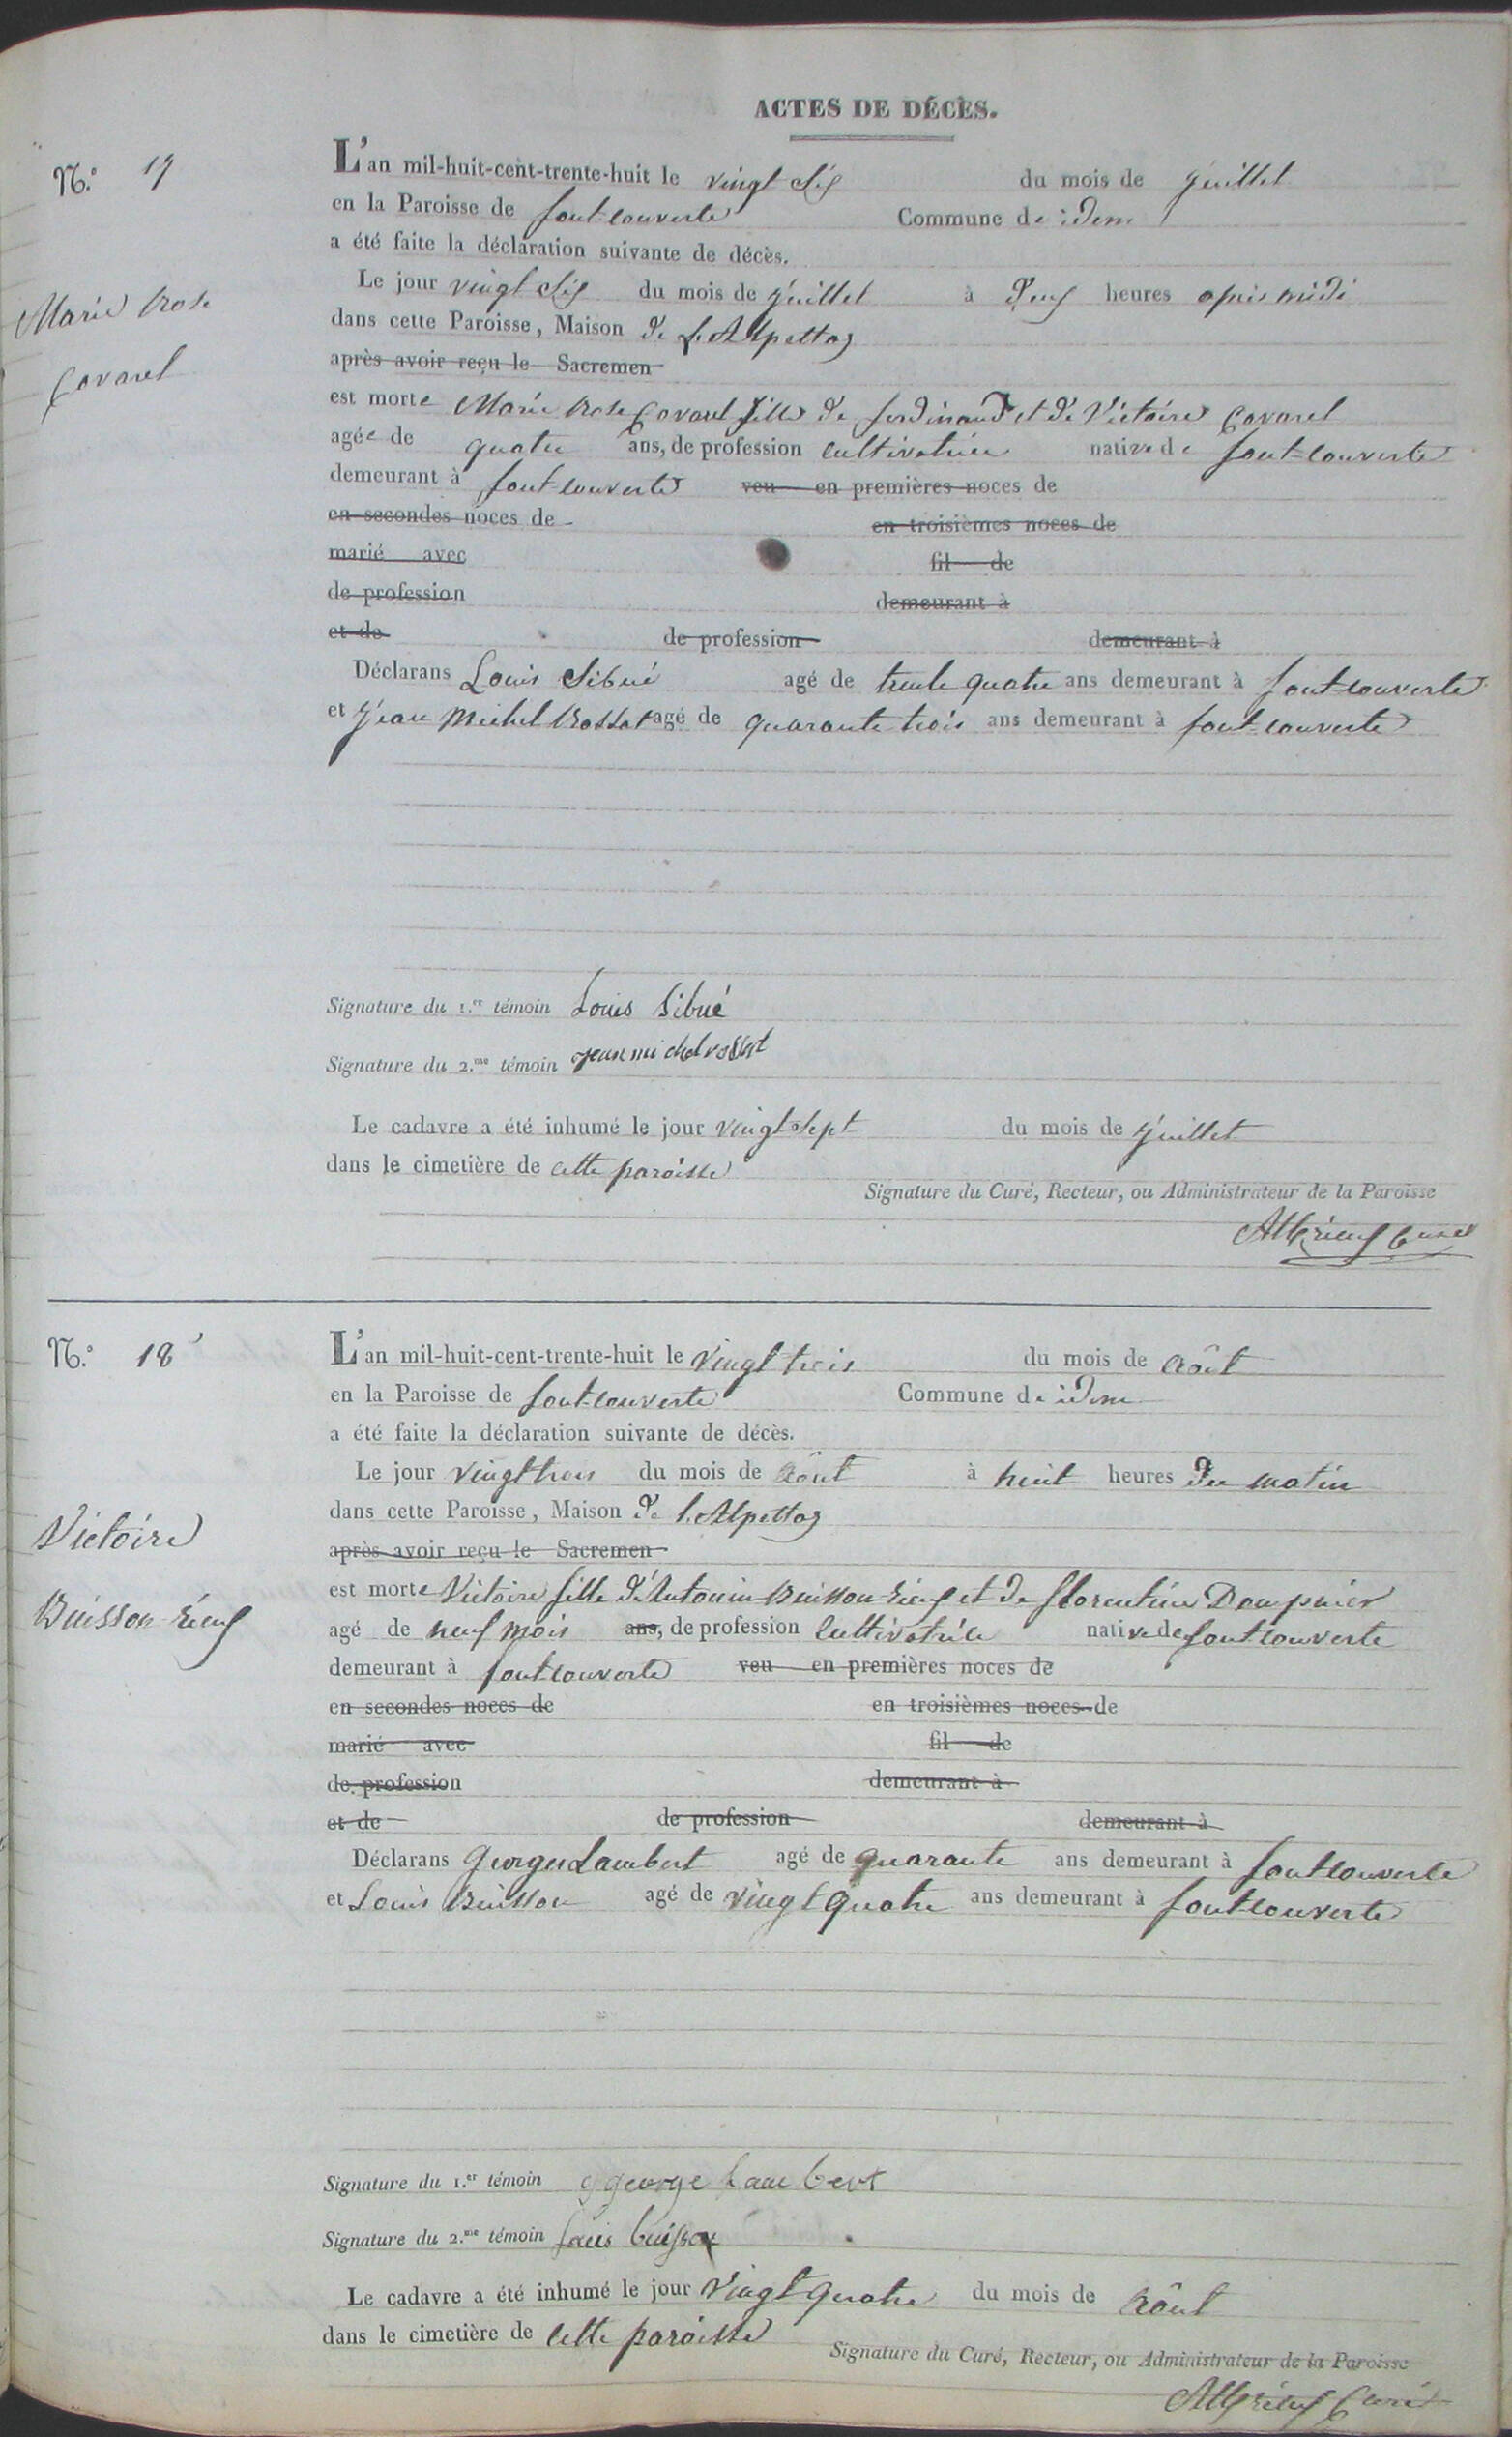 ACTES DE DÉCÈS.
N.° 17
L'an mil-huit-cent-trente-huit le vingt six du mois de juillet
en la Paroisse de fontcouverte Commune de idem
a été faite la déclaration suivante de décès.
Le jour vingt six du mois de juillet à deux heures après midi
Marie Rose
Covarel
dans cette Paroisse, Maison de l'Alpettaz
après avoir reçu le Sacremen
est morte Marie Rose Covarel fille de ferdinand et de Victoire Covarel
agée de quatre ans, de profession cultivatrice native de fontcouverte
demeurant à fontcouverte veu en premières noces de
en secondes noces de en troisièmes noces de
marié avec fil de
de profession demeurant à
et de de profession demeurant à
Déclarans Louis Sibué agé de trente quatre ans demeurant à fontcouverte
et Jean Michel Rossat agé de quarante trois ans demeurant à fontcouverte
Signature du 1.er témoin Louis Sibué
Signature du 2.me témoin jean michel rossat
Le cadavre a été inhumé le jour vingt sept du mois de juillet
dans le cimetière de cette paroisse
Signature du Curé, Recteur, ou Administrateur de la Paroisse
Curé
N.° 18
L'an mil-huit-cent-trente-huit le vingt trois du mois de Août
en la Paroisse de fontcouverte Commune de idem
a été faite la déclaration suivante de décès.
Le jour vingt trois du mois de Août à huit heures du matin
dans cette Paroisse, Maison de l'Alpettaz
Victoire
Buisson-rieuf
après avoir reçu le Sacremen
est morte Victoire fille d'Antonin Buisson rieuf et de florentine Dompnier
agé de neuf mois ans, de profession cultivatrice native de fontcouverte
demeurant à fontcouverte veu en premières noces de
en secondes noces de en troisièmes noces de
marié avec fil de
de profession demeurant à
et de de profession demeurant à
Déclarans George Lambert agé de quarante ans demeurant à fontcouverte
et Louis Buisson agé de vingt quatre ans demeurant à fontcouverte
Signature du 1.er témoin george Lambert
Signature du 2.me témoin louis buisson
Le cadavre a été inhumé le jour vingt quatre du mois de Août
dans le cimetière de cette paroisse
Signature du Curé, Recteur, ou Administrateur de la Paroisse
Curé